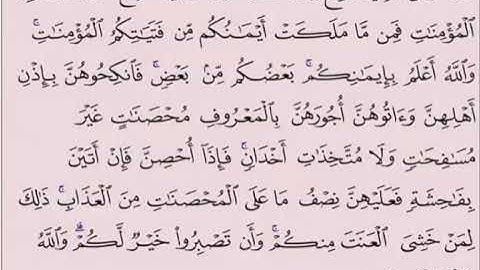 ٱلۡمُؤۡمِنَٰتِ فَمِن مَّا مَلَكَتۡ أَيۡمَٰنُكُم مِّن فَتَيَٰتِكُمُ ٱلۡمُؤۡمِنَٰتِۚ
وَٱللَّهُ أَعۡلَمُ بِإِيمَٰنِكُمۚ بَعۡضُكُم مِّنۢ بَعۡضٖۚ فَٱنكِحُوهُنَّ بِإِذۡنِ
أَهۡلِهِنَّ وَءَاتُوهُنَّ أُجُورَهُنَّ بِٱلۡمَعۡرُوفِ مُحۡصَنَٰتٍ غَيۡرَ
مُسَٰفِحَٰتٖ وَلَا مُتَّخِذَٰتِ أَخۡدَانٖۚ فَإِذَآ أُحۡصِنَّ فَإِنۡ أَتَيۡنَ
بِفَٰحِشَةٖ فَعَلَيۡهِنَّ نِصۡفُ مَا عَلَى ٱلۡمُحۡصَنَٰتِ مِنَ ٱلۡعَذَابِۚ ذَٰلِكَ
لِمَنۡ خَشِيَ ٱلۡعَنَتَ مِنكُمۡۚ وَأَن تَصۡبِرُواْ خَيۡرٞ لَّكُمۡۗ وَٱللَّهُ